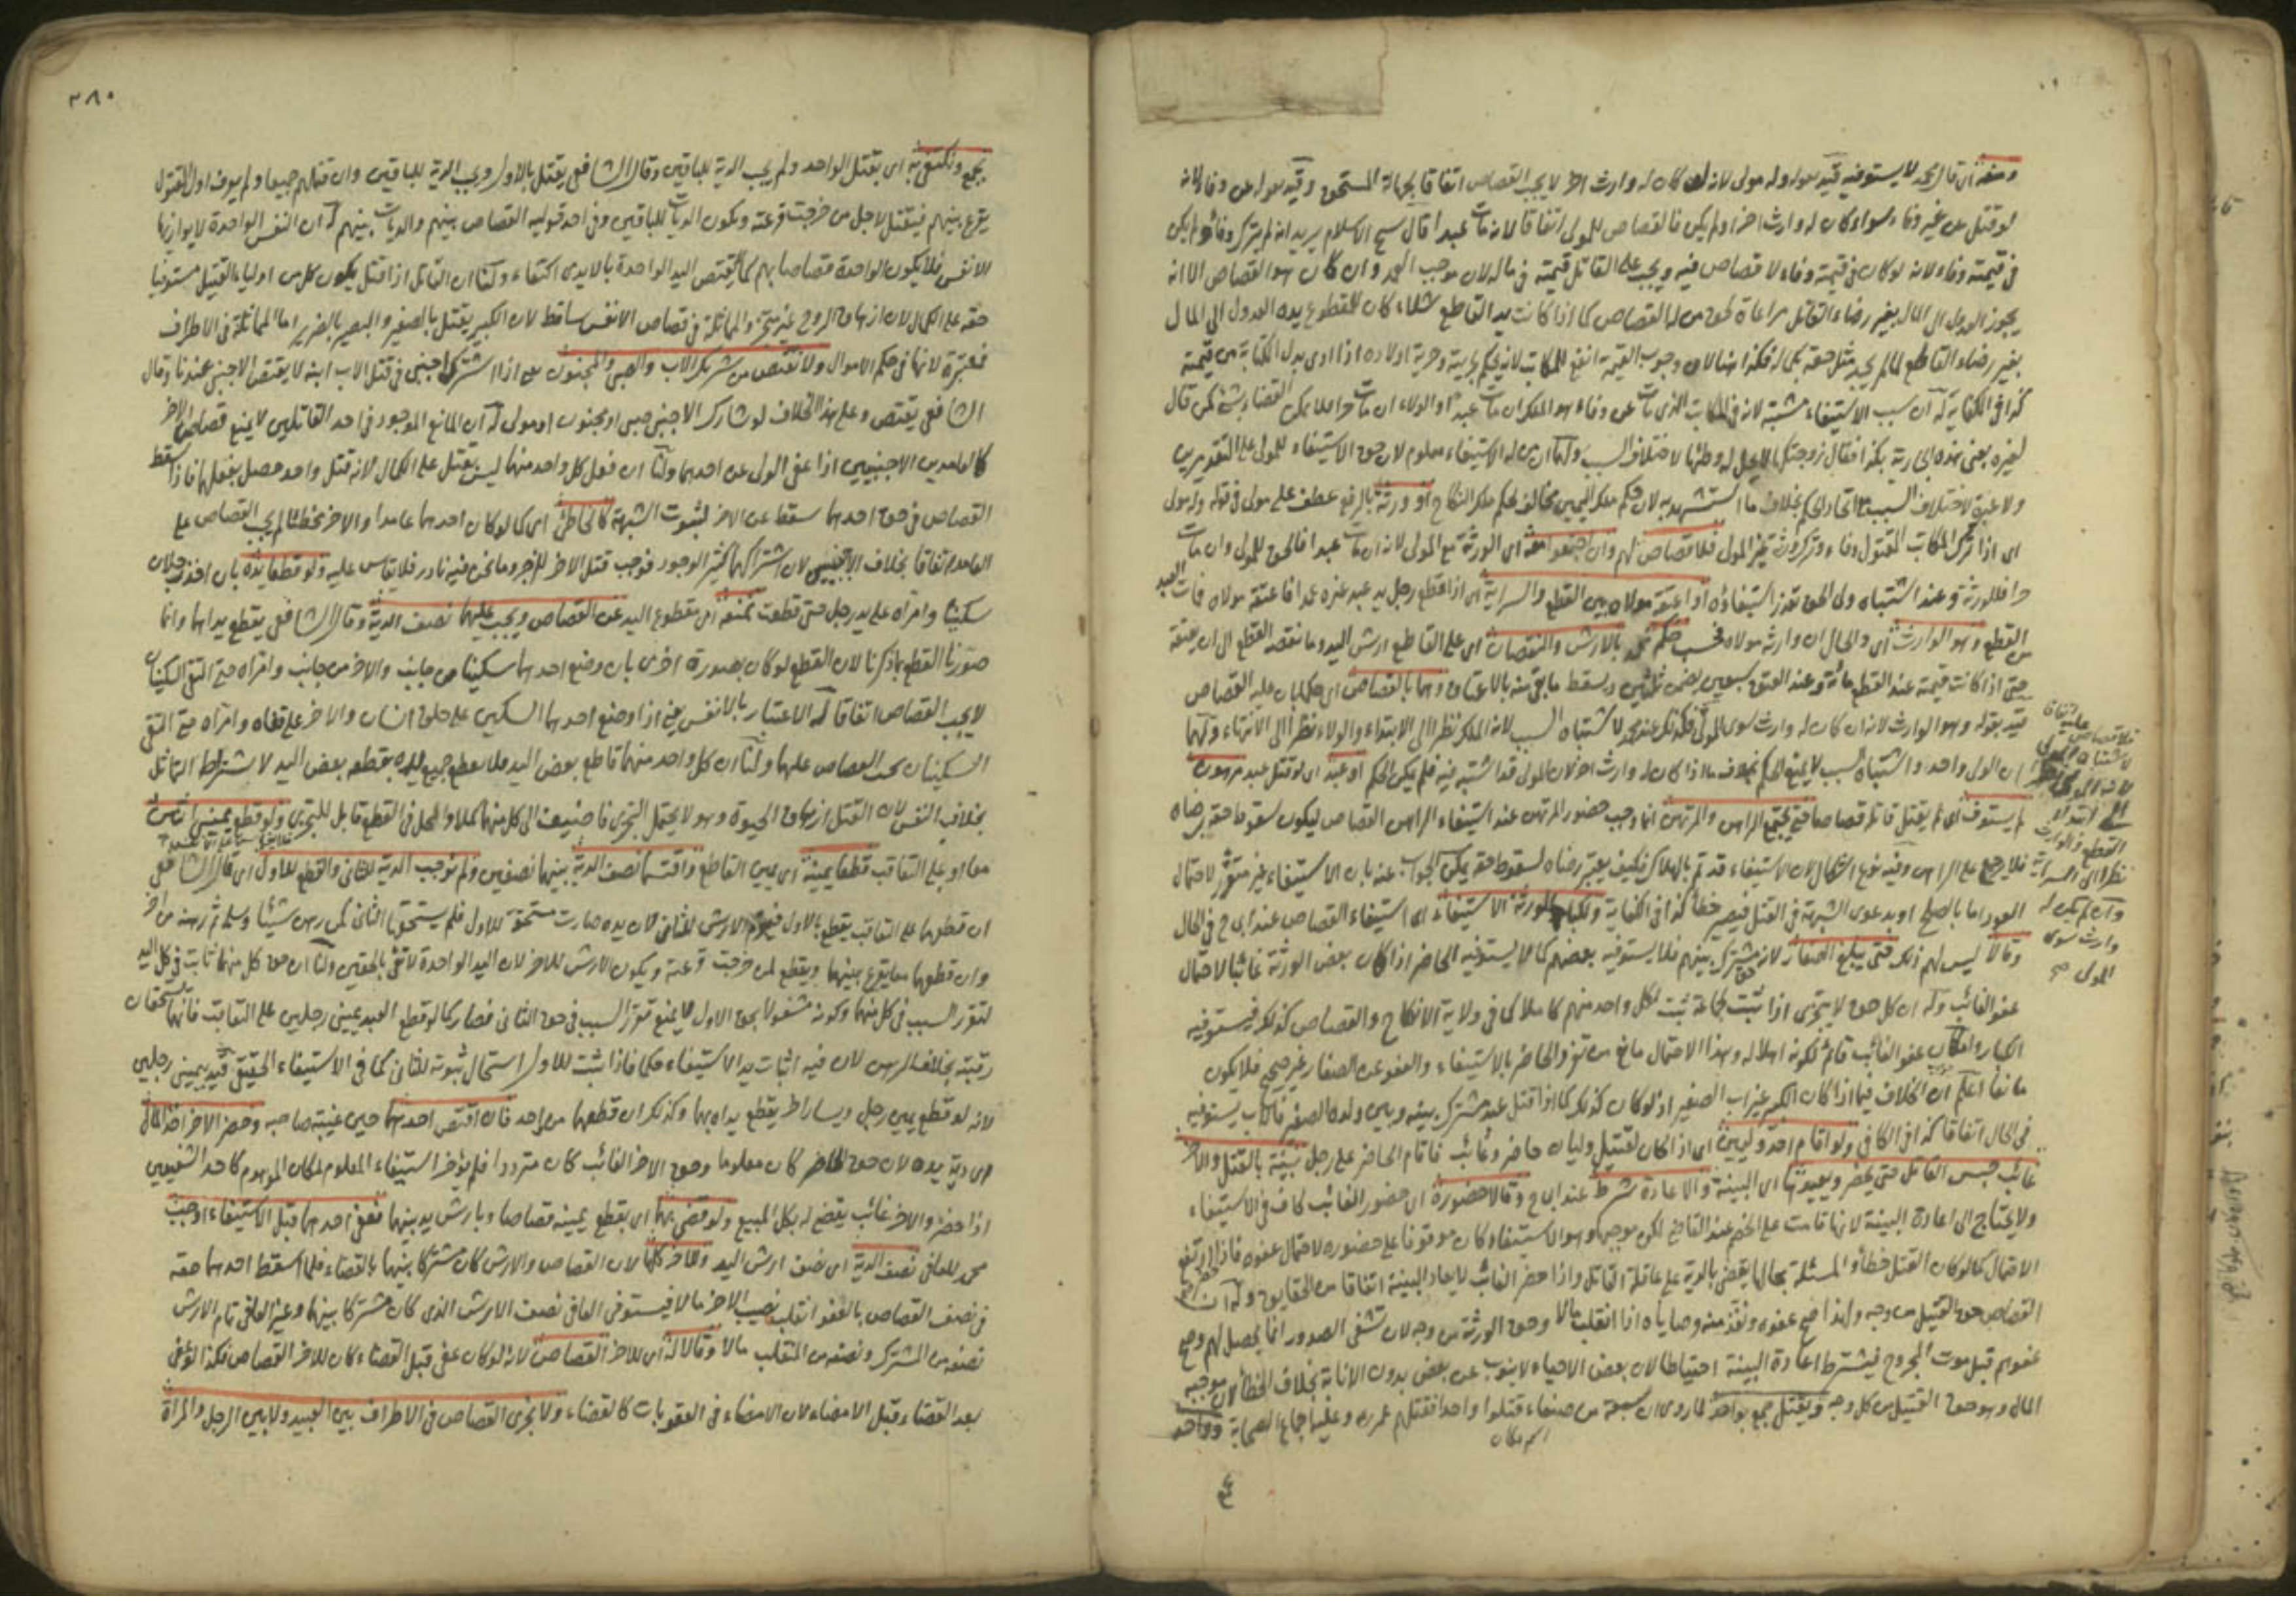 ومنعه اى قال محمد لا يستوفيه قيد بقوله وله مولى لانه لو كان له وارث اخر لا يجب القصاص اتفاقا لجهالة المستحق وقيد بقوله عن وفاء لانه
لو قتل عن غير وفاء سواء كان له وارث اخر او لم يكن فالقصاص للمولى اتفاقا لانه مات عبدا قال شيخ الاسلام يريد انه لم يترك وفاء ولم يكن
فى قيمته وفاء لانه لو كان فى قيمته وفاء لا قصاص فيه ويجب على القاتل قيمته فى ماله لان موجب العمد وان كان هو القصاص الا انه
يجوز العدول الى المال بغير رضاء القاتل مراعاة لحق من له القصاص كما اذا كانت يد القاطع شلاء كان للمقطوع يده العدول الى المال
بغير رضاء القاطع لما لم يجد مثل حقه بكماله فكذا هنا لان وجوب القيمة انفع للمكاتب لانه يحكم بحريته وحرية اولاده اذا ادى بدل الكتابة من قيمته
كذا فى الكفاية له ان سبب الاستيفاء مشتبه لانه فى المكاتب الذى مات عن وفاء هو الملك ان مات عبدا او الولاء ان مات حرا فلا يمكن القضاء بشئ كمن قال
لغيره بعنى هذه الجارية بكذا فقال زوجتكها لا يحل له وطئها لاختلاف السبب ولهما ان من له الاستيفاء معلوم لان حق الاستيفاء للمولى على التقديرين
ولا عبرة لاختلاف السبب مع اتحاد الحكم بخلاف ما استشهد به لان حكم ملك اليمين مخالف لحكم ملك النكاح او ورثة بالرفع عطف على مولى فى قوله وله مولى
اى اذا ترك المكاتب المقتول وفاء وترك ورثة غير المولى فلا قصاص لهم وان اجتمعوا معه اى الورثة مع المولى لانه ان مات عبدا فالحق للمولى وان مات
حرا فللورثة وعند اشتباه ولى الحق تعذر استيفاؤه او اعتقه مولاه بين القطع والسراية اى اذا قطع رجل يد عبد غيره عمدا فاعتقه مولاه فمات العبد
من القطع وهو الوارث اى والحال ان وارثه مولاه فحسب حكم محمد بالارش والنقصان اى على القاطع ارش اليد وما نقصه القطع الى ان يعتقه
حتى اذا كانت قيمته عند القطع مائة وعند العتق سبعين يضمن ثلثين ويسقط ما بقى منه بالاعتاق وهما بالقصاص اى حكما بان عليه القصاص
قيد بقوله وهو الوارث لانه ان كان له وارث سوى المولى فكذلك عند محمد لاشتباه السبب لانه الملك نظرا الى الابتداء والولاء نظرا الى الانتهاء ولهما
ان الولى واحد واشتباه السبب لا يمنع الحكم بخلاف ما اذا كان له وارث اخر لان المولى قد اشتبه فيه فلم يكن الحكم او عبد اى لو قتل عبد مرهون
لم يستوف اى لم يقتل قاتله قصاصا حتى يجتمع الراهن والمرتهن انما وجب حضور المرتهن عند استيفاء الراهن القصاص ليكون سقوط حقه برضاه
فلا يرجع على الراهن وفيه نوع اشكال لان الاستيفاء قد تم بالهلاك فكيف يعتبر رضاه لسقوط حقه يمكن الجواب عنه بان الاستيفاء غير متقرر لاحتمال
العود اما بالصلح او بدعوى الشبهة فى القتل فيصير خطأ كذا فى الكفاية ولكبار الورثة الاستيفاء اى استيفاء القصاص عند ابى ح فى الحال
وقالا ليس لهم ذلك حتى يبلغ الصغار لانه حق مشترك بينهم فلا يستوفيه بعضهم كما لا يستوفيه الحاضر اذا كان بعض الورثة غائبا لاحتمال
عفو الغائب وله ان كل حق لا يتجزى اذا ثبت لجماعة ثبت لكل واحد منهم كاملا كما فى ولاية الانكاح والقصاص كذلك فيستوفيه
الكبار وامكان عفو الغائب قائم لكونه اهلا له وهذا الاحتمال مانع من تفرد الحاضر بالاستيفاء والعفو عن الصغار غير صحيح فلا يكون
مانعا اعلم ان الخلاف فيما اذا كان الكبير غير اب الصغير اذ لو كان كذلك كما اذا قتل عبد مشترك بينه وبين ولده الصغير فالاب يستوفيه
فى الحال اتفاقا كذا فى الكافى ولو اقام احد وليين اى اذا كان لقتيل وليان حاضر وغائب فاقام الحاضر على رجل بينة بالقتل والاخر
غائب حبس القاتل حتى يحضر ويعيدها اى البينة والاعادة شرط عند ابى ح وقالا حضوره اى حضور الغائب كاف فى الاستيفاء
ولا يحتاج الى اعادة البينة لانها قامت على الخصم عند القاضى لكن موجبها وهو الاستيفاء كان موقوفا على حضوره لاحتمال عفوه فاذا حضر ارتفع
الاحتمال كما لو كان القتل خطأ والمسئلة بحالها يقضى بالدية على عاقلة القاتل واذا حضر الغائب لا يعاد البينة اتفاقا من الحقايق وله ان
القصاص حق القتيل من وجه ولهذا صح عفوه ونفذ منه وصاياه اذا انقلب مالا وحق الورثة من وجه لان تشفى الصدور انما يحصل لهم وصح
عفوهم قبل موت المجروح فيشترط اعادة البينة احتياطا لان بعض الاحياء لا ينوب عن بعض بدون الانابة بخلاف الخطأ لان موجبه
المال وهو حق القتيل من كل وجه ويقتل جمع بواحد لما روى ان سبعة من صنعاء قتلوا واحدا فقتلهم عمر رض وعليه اجماع الصحابة وواحد
اسم مكان
فلا قصاص عليه اتفاقا
لاشتباه المولى
القطع والوارث
نظرا الى السراية
وان لم يكن له
وارث سوى
المولى صح
٣٨٠
بجمع ونكتفى به اى يقتل الواحد ولم يجب الدية للباقين وقال الشافعى يقتل بالاول ويجب الدية للباقين وان قتلهم جميعا ولم يعرف اول المقتول
يقرع بينهم فيقتل لاجل من خرجت قرعته ويكون الديات للباقين وفى احد قوليه القصاص بينهم والديات بينهم له ان النفس الواحدة لا يوازيها
الانفس فلا يكون الواحدة قصاصا بهم كما لا يقتص اليد الواحدة بالايدى اكتفاء ولنا ان القاتل اذا قتل يكون كل من اولياء القتيل مستوفيا
حقه على الكمال لان ازهاق الروح غير متجز والمماثلة فى قصاص الانفس ساقط لان الكبير يقتل بالصغير والبصير بالضرير اما المماثلة فى الاطراف
فمعتبرة لانها فى حكم الاموال ولا نقتص من شريك الاب والصبى والمجنون يعنى اذا اشترك اجنبى فى قتل الاب ابنه لا يقتص الاجنبى عندنا وقال
الشافعى يقتص وعلى هذا الخلاف لو شارك الاجنبى صبى او مجنون او مولى له ان المانع الموجود فى احد القاتلين لا يمنع قصاص الاخر
كالعامدين الاجنبيين اذا عفى الولى عن احدهما ولنا ان فعل كل واحد منهما ليس بقتل على الكمال لانه قتل واحد حصل بفعلهما فاذا سقط
القصاص فى حق احدهما سقط عن الاخر لثبوت الشبهة كالخاطئ اى كما لو كان احدهما عامدا والاخر مخطئا لم يجب القصاص على
العامد اتفاقا بخلاف الاجنبيين لان اشتراكهما كثير الوجود فوجب قتل الاخر للزجر وما نحن فيه نادر فلا يقاس عليه ولو قطعا يده بان اخذ رجلان
سكينا وامراه على يد رجل حتى قطعت نمنعه اى مقطوع اليد عن القصاص ويجب عليهما نصف الدية وقال الشافعى يقطع يداهما وانما
صورنا القطع بما ذكرنا لان القطع لو كان بصورة اخرى بان وضع احدهما سكينا من جانب والاخر من جانب وامراه حتى التقى السكينان
لا يجب القصاص اتفاقا له الاعتبار بالانفس يعنى اذا وضع احدهما السكين على حلق انسان والاخر على قفاه وامراه حتى التقى
السكينان يجب القصاص عليهما ولنا ان كل واحد منهما قاطع بعض اليد فلا يقطع جميع يده بقطعه بعض اليد لاشتراط التماثل
بخلاف النفس لان القتل ازهاق الحيوة وهو لا يحتمل التجزى فاضيف الى كل منهما كملا والمحل فى القطع قابل للتجزى ولو قطع يمينى اثنين
معا او على التعاقب قطعا يمينه اى يمين القاطع واقتسما نصف الدية بينهما نصفين ولم نوجب الدية للثانى والقطع للاول اى قال الشافعى
ان قطعهما على التعاقب يقطع بالاول فيغرم الارش للثانى لان يده صارت مستحقة للاول فلم يستحقها الثانى كمن رهن شيئا وسلم ثم رهنه من اخر
وان قطعهما معا يقرع بينهما ويقطع لمن خرجت قرعته ويكون الارش للاخر لان اليد الواحدة لا تفى بالحقين ولنا ان حق كل منهما ثابت فى كل اليد
لتقرر السبب فى كل منهما وكونه مشغولا بحق الاول لا يمنع تقرر السبب فى حق الثانى فصار كما لو قطع العبد يمينى رجلين على التعاقب فانهما يستحقان
رقبته بخلاف الرهن لان فيه اثبات يد الاستيفاء حكما فاذا ثبت للاول استحال ثبوته للثانى كما فى الاستيفاء الحقيقى قيد بيمينى رجلين
لانه لو قطع يمين رجل ويسار اخر يقطع يداه بهما وكذلك ان قطعهما من واحد فان اقتص احدهما حين غيبة صاحبه وحضر الاخر اخذ المال
اى دية يده لان حق الحاضر كان معلوما وحق الاخر الغائب كان مترددا فلم يؤخر استيفاء المعلوم لمكان الموهوم كاحد الشفيعين
اذا حضر والاخر غائب يقضى له بكل المبيع ولو قضى بهما اى بقطع يمينه قصاصا وبارش يد بينهما فعفى احدهما قبل الاستيفاء اوجب
محمد للعافى نصف الدية اى نصف ارش اليد وللاخر كلها لان القصاص والارش كان مشتركا بينهما بالقضاء فلما اسقط احدهما حقه
فى نصف القصاص بالعفو انقلب نصيب الاخر مالا فيستوفى العافى نصف الارش الذى كان مشتركا بينهما وغير العافى تمام الارش
نصفه من المشترك ونصفه من المنقلب مالا وقالا له اى للاخر القصاص لانه لو كان عفى قبل القضاء كان للاخر القصاص فكذا لو عفى
بعد القضاء وقبل الامضاء لان الامضاء فى العقوبات كالقضاء ولا يجزى القصاص فى الاطراف بين العبيد ولا بين الرجل والمراة